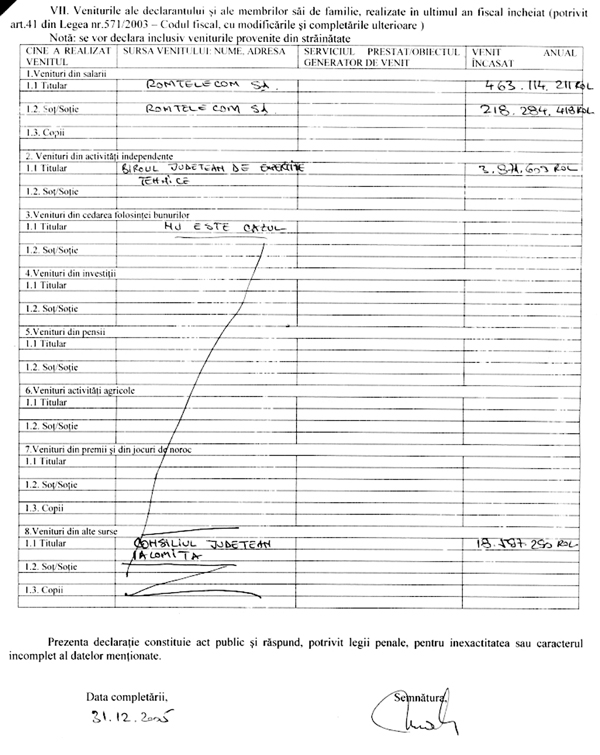 VII. Veniturile ale declarantului și ale membrilor săi de familie, realizate în ultimul an fiscal încheiat (potrivit
art.41 din Legea nr.571/2003 – Codul fiscal, cu modificările și completările ulterioare )
Notă: se vor declara inclusiv veniturile provenite din străinătate
CINE A REALIZAT VENITUL SURSA VENITULUI: NUME, ADRESA SERVICIUL PRESTAT/OBIECTUL GENERATOR DE VENIT VENIT ANUAL ÎNCASAT
1.Venituri din salarii
1.1 Titular ROMTELECOM SA. 463.114.211 ROL
1.2. Soț/Soție ROMTELECOM SA. 218.284.418 ROL
1.3. Copii
2. Venituri din activități independente
1.1 Titular BIROUL JUDEȚEAN DE EXPERTIZE ROL
TEHNICE
1.2. Soț/Soție
3.Venituri din cedarea folosinței bunurilor
1.1 Titular NU ESTE CAZUL
1.2. Soț/Soție
4.Venituri din investiții
1.1 Titular
1.2. Soț/Soție
5.Venituri din pensii
1.1 Titular
1.2. Soț/Soție
6.Venituri activități agricole
1.1 Titular
1.2. Soț/Soție
7.Venituri din premii și din jocuri de noroc
1.1 Titular
1.2. Soț/Soție
1.3. Copii
8.Venituri din alte surse
1.1 Titular CONSILIUL JUDEȚEAN ROL
IALOMIȚA
1.2. Soț/Soție
1.3. Copii
Prezenta declarație constituie act public și răspund, potrivit legii penale, pentru inexactitatea sau caracterul
incomplet al datelor menționate.
Data completării, Semnătura,
31.12.2005